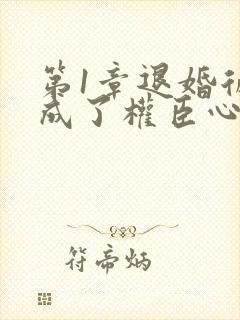 第1章退婚後
成了權臣心
符帝炳